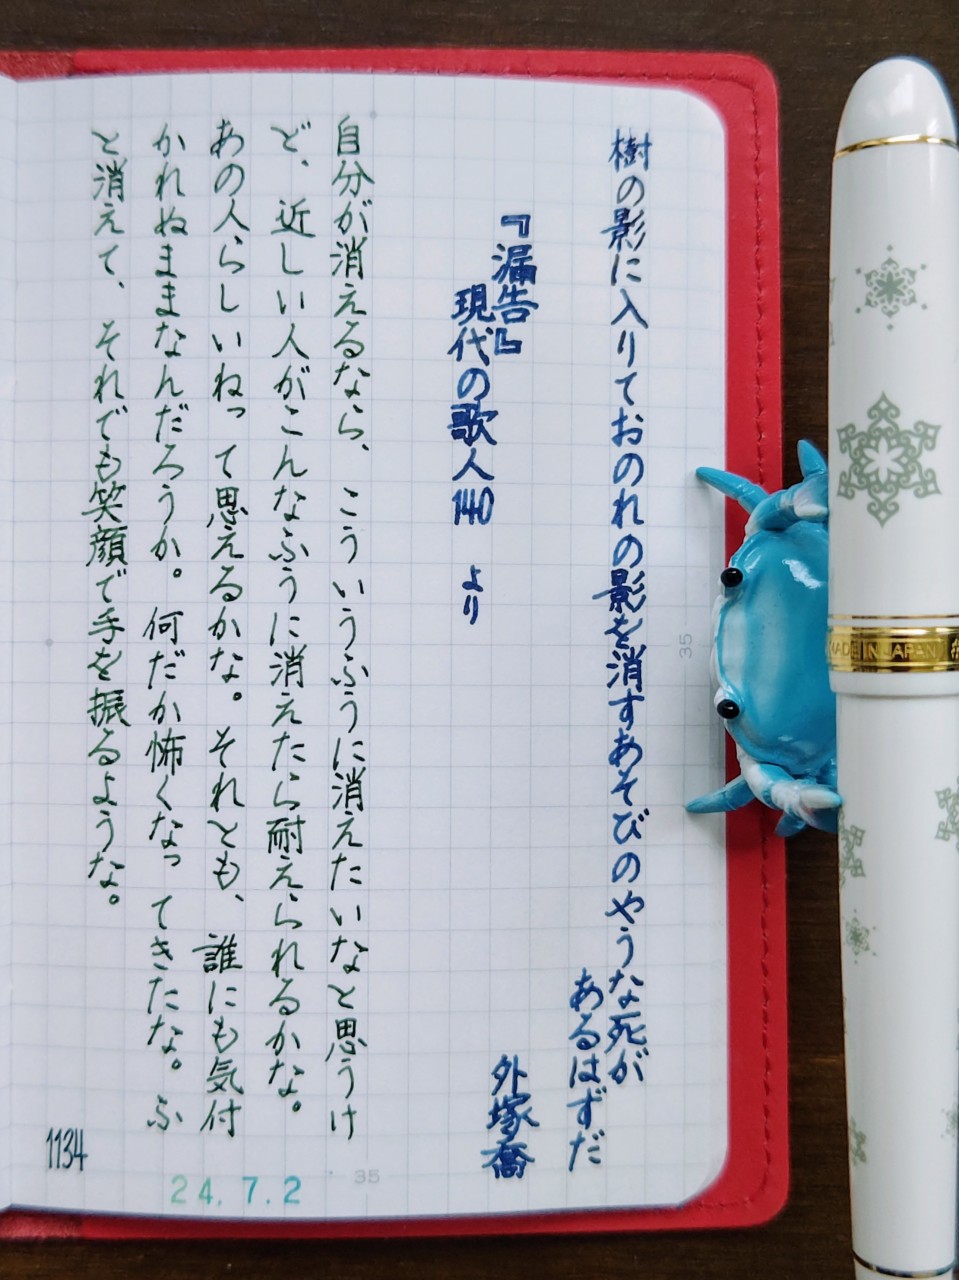 樹の影に入りておのれの影を消すあそびのやうな死が
あるはずだ
外塚喬
『漏告』
現代の歌人140 より
自分が消えるなら、こういうふうに消えたいなと思うけ
ど、近しい人がこんなふうに消えたら耐えられるかな。
あの人らしいねって思えるかな。それとも、誰にも気付
かれぬままなんだろうか。何だか怖くなってきたな。ふ
と消えて、それでも笑顔で手を振るような。
1134
24.7.2
35
35
MADE IN JAPAN